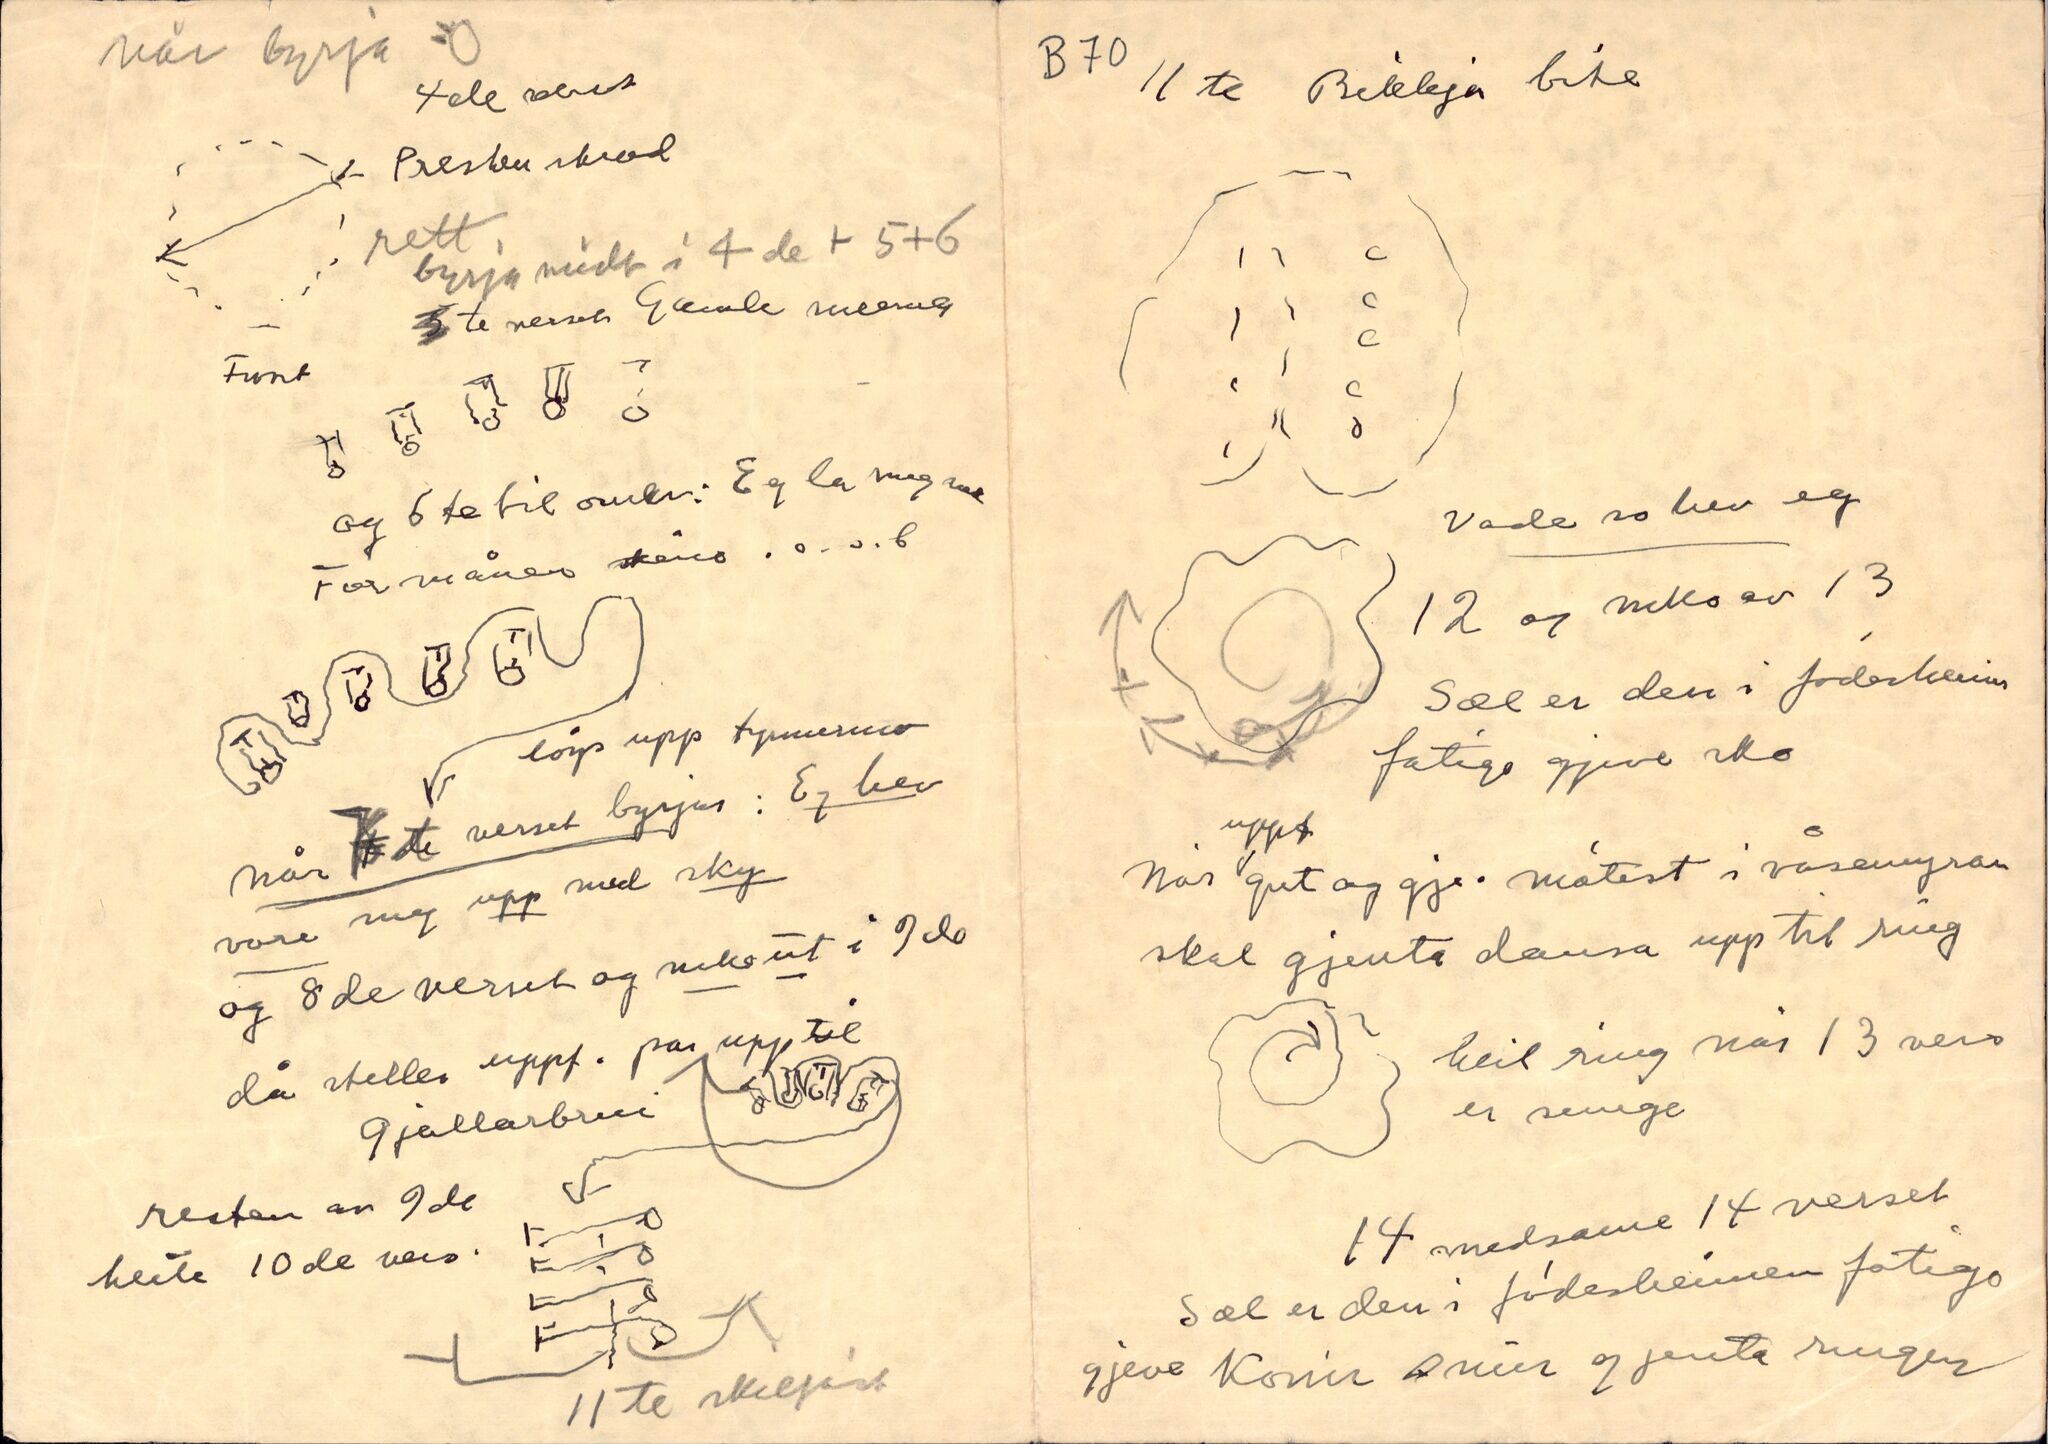 når byrja
4de vers
Presten stod
rett
byrja midt i 4de + 5+6
te verset Gamle
Funt
og 6te til omkv: Eg la meg
For månen skino
løyp upp
når te verset byrjar : Eg hev
vore meg upp med sky
og 8de verset og noko ut i 9de
då stelles uppf. par upp til
gjallarbrui
resten av 9de
heile 10de vers.
11te skiljast
B70
11te Bikkja bite
Vade so hev eg
12 og noko av 13
Sæl er den i fødesheimen
fatige gjeve sko
uppf
Når gut og gje. møtest i våsemyran
skal gjenta dansa upp til ring
heil ring når 13 vers
er sunge
14 medsame 14 verset
Sæl er den i fødesheimen fatige
gjeve Korn snur gjenta ringen